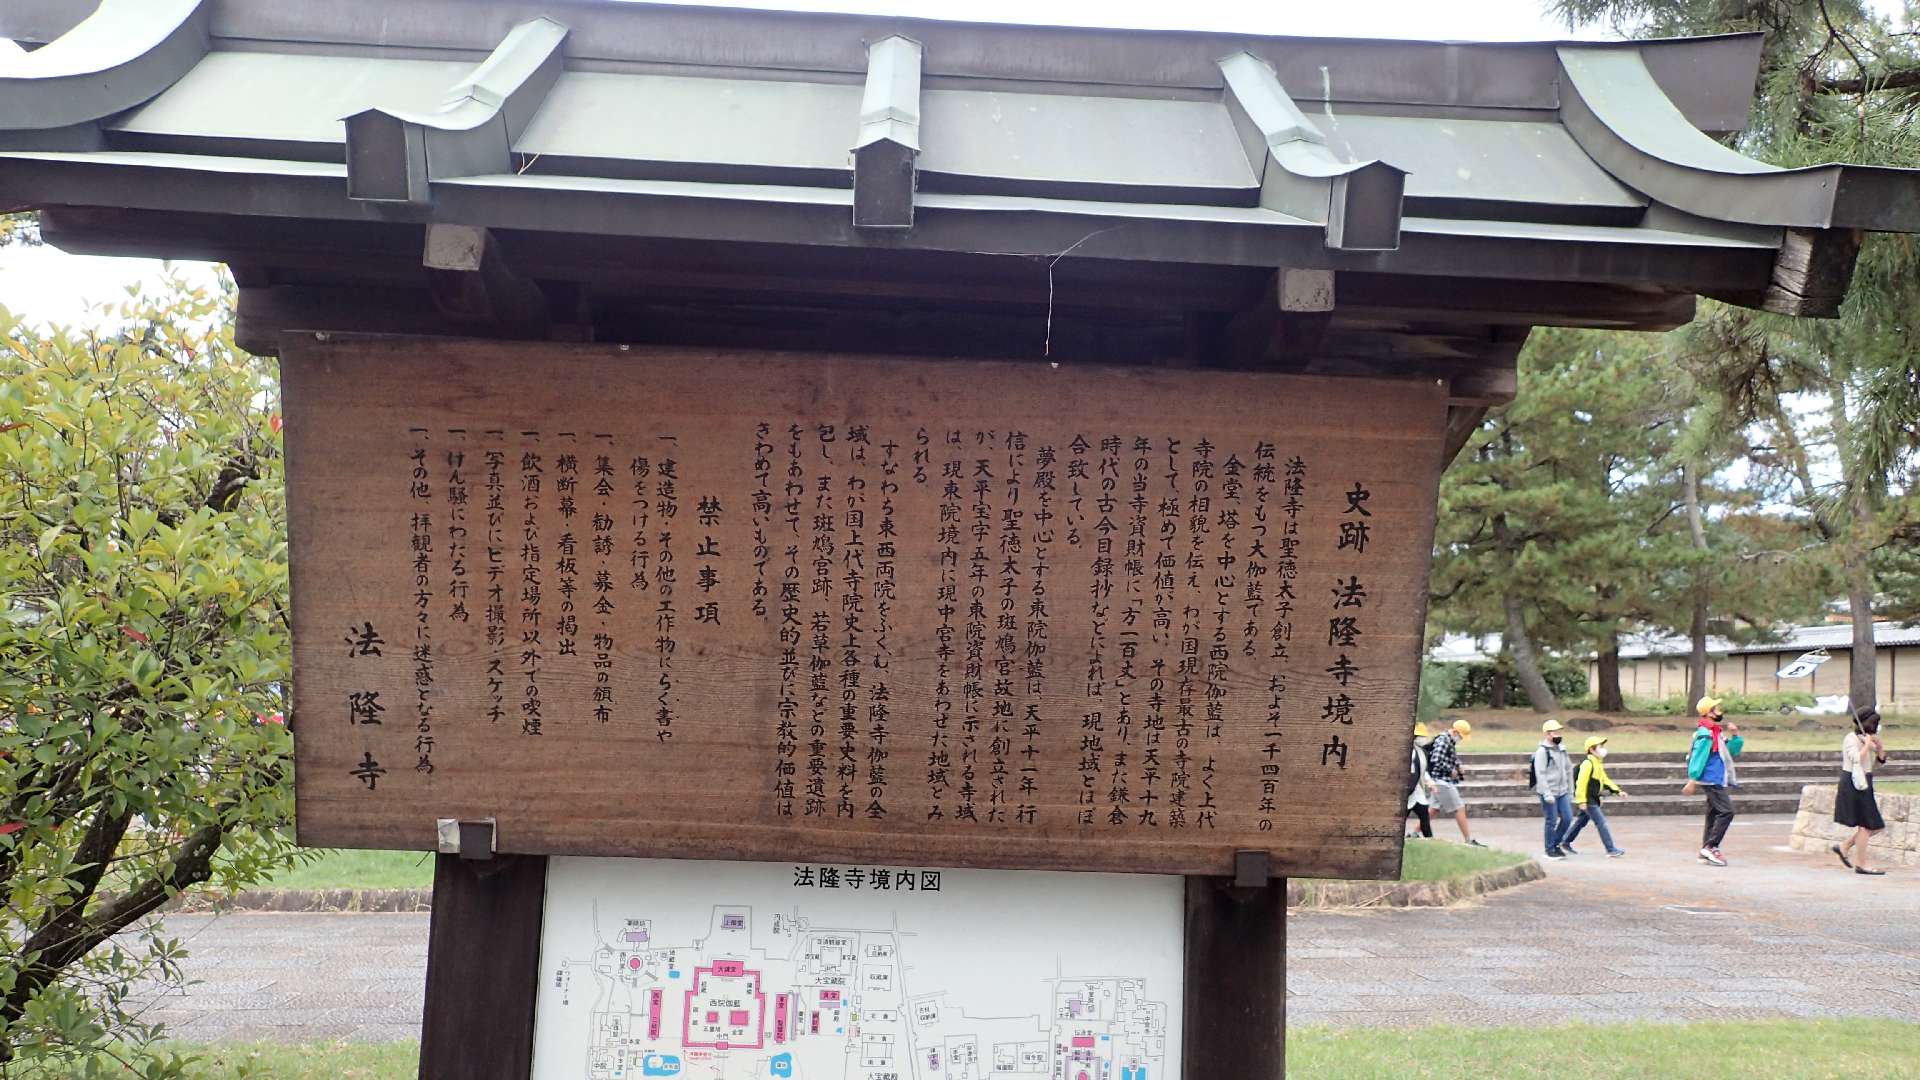 史跡 法隆寺境内
法隆寺は聖徳太子創立、およそ一千四百年の
伝統をもつ大伽藍である。
金堂、塔を中心とする西院伽藍は、よく上代
寺院の相貌を伝え、わが国現存最古の寺院建築
として、極めて価値が高い。その寺地は天平十九
年の当寺資財帳に「方一百丈」とあり、また鎌倉
時代の古今目録抄などによれば、現地域とほぼ
合致している。
夢殿を中心とする東院伽藍は、天平十一年行
信により聖徳太子の斑鳩宮故地に創立された
が、天平宝字五年の東院資財帳に示される寺域
は、現東院境内に現中宮寺をあわせた地域とみ
られる。
すなわち東西両院をふくむ、法隆寺伽藍の全
域は、わが国上代寺院史上各種の重要史料を内
包し、また斑鳩宮跡、若草伽藍などの重要遺跡
をもあわせて、その歴史的並びに宗教的価値は
きわめて高いものである。
禁止事項
一、建造物・その他の工作物にらく書や
傷をつける行為
一、集会・勧誘・募金・物品の頒布
一、横断幕・看板等の掲出
一、飲酒および指定場所以外での喫煙
一、写真並びにビデオ撮影、スケッチ
一、けん騒にわたる行為
一、その他、拝観者の方々に迷惑となる行為
法隆寺
法隆寺境内図
上御堂
大講堂
西院伽藍
五重塔
金堂
中門
大宝蔵院
収蔵庫
大宝蔵殿
伝法堂